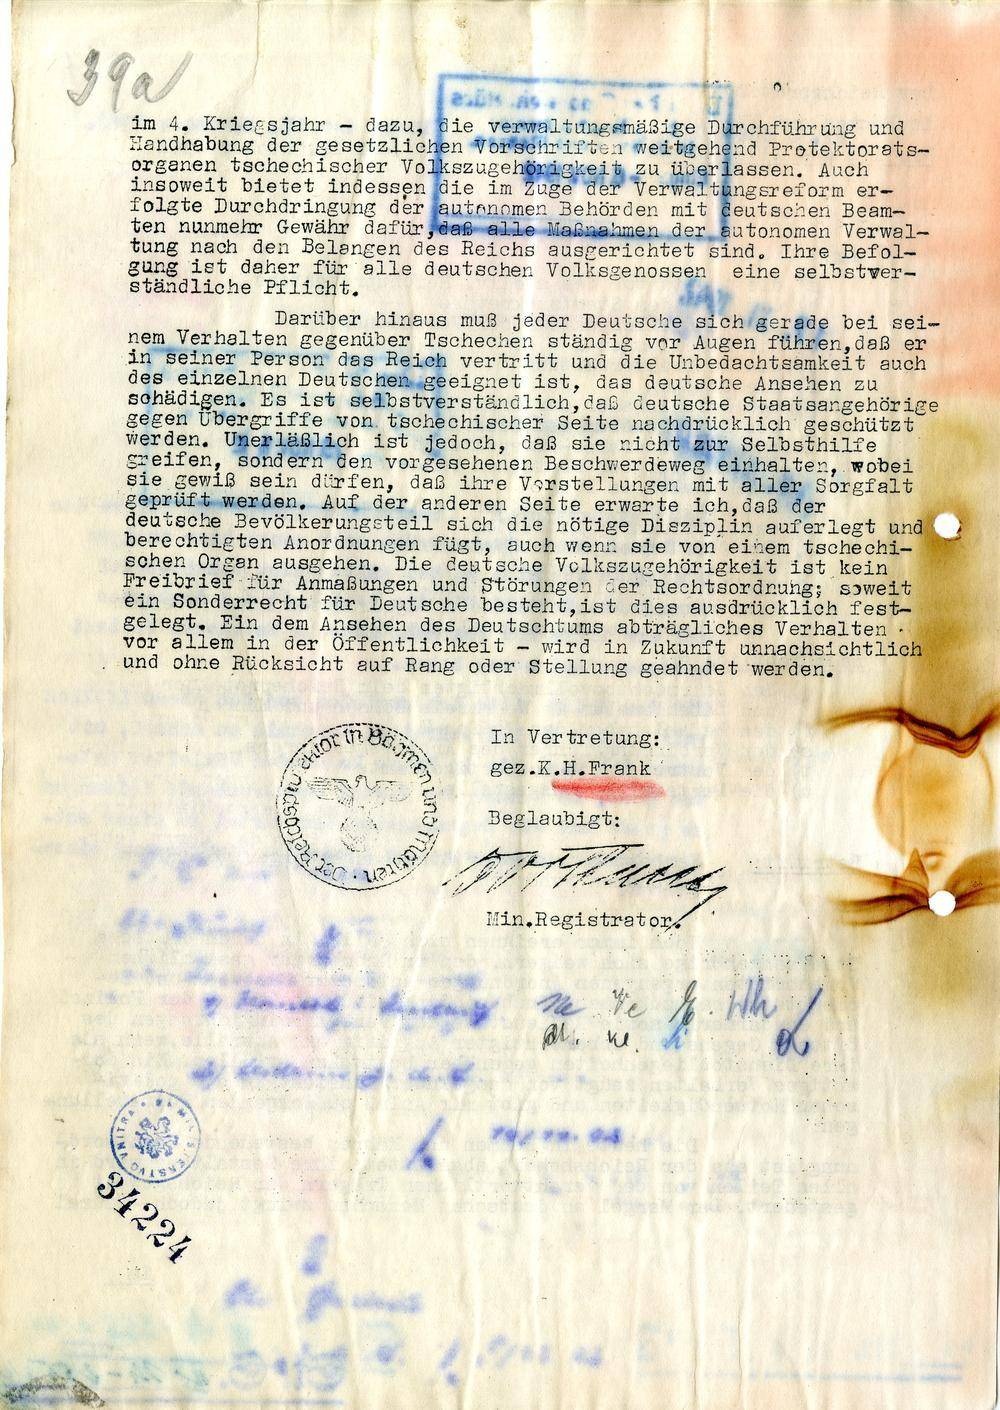 39a
im 4. Kriegsjahr - dazu, die verwaltungsmäßige Durchführung und
Handhabung der gesetzlichen Vorschriften weitgehend Protektorats-
organen tschechischer Volkszugehörigkeit zu überlassen. Auch
insoweit bietet indessen die im Zuge der Verwaltungsreform er-
folgte Durchdringung der autonomen Behörden mit deutschen Beam-
ten nunmehr Gewähr dafür,daß alle Maßnahmen der autonomen Verwal-
tung nach den Belangen des Reichs ausgerichtet sind. Ihre Befol-
gung ist daher für alle deutschen Volksgenossen eine selbstver-
ständliche Pflicht.
Darüber hinaus muß jeder Deutsche sich gerade bei sei-
nem Verhalten gegenüber Tschechen ständig vor Augen führen,daß er
in seiner Person das Reich vertritt und die Unbedachtsamkeit auch
des einzelnen Deutschen geeignet ist, das deutsche Ansehen zu
schädigen. Es ist selbstverständlich,daß deutsche Staatsangehörige
gegen Übergriffe von tschechischer Seite nachdrücklich geschützt
werden. Unerläßlich ist jedoch, daß sie nicht zur Selbsthilfe
greifen, sondern den vorgesehenen Beschwerdeweg einhalten, wobei
sie gewiß sein dürfen, daß ihre Vorstellungen mit aller Sorgfalt
geprüft werden. Auf der anderen Seite erwarte ich,daß der
deutsche Bevölkerungsteil sich die nötige Disziplin auferlegt und
berechtigten Anordnungen fügt, auch wenn sie von einem tschechi-
schen Organ ausgehen. Die deutsche Volkszugehörigkeit ist kein
Freibrief für Anmaßungen und Störungen der Rechtsordnung; soweit
ein Sonderrecht für Deutsche besteht,ist dies ausdrücklich fest-
gelegt. Ein dem Ansehen des Deutschtums abträgliches Verhalten -
vor allem in der Öffentlichkeit - wird in Zukunft unnachsichtlich
und ohne Rücksicht auf Rang oder Stellung geahndet werden.
In Vertretung:
gez.K.H.Frank
Der Reichsprotektor in Böhmen und Mähren
Beglaubigt:
Min.Registrator.
34224